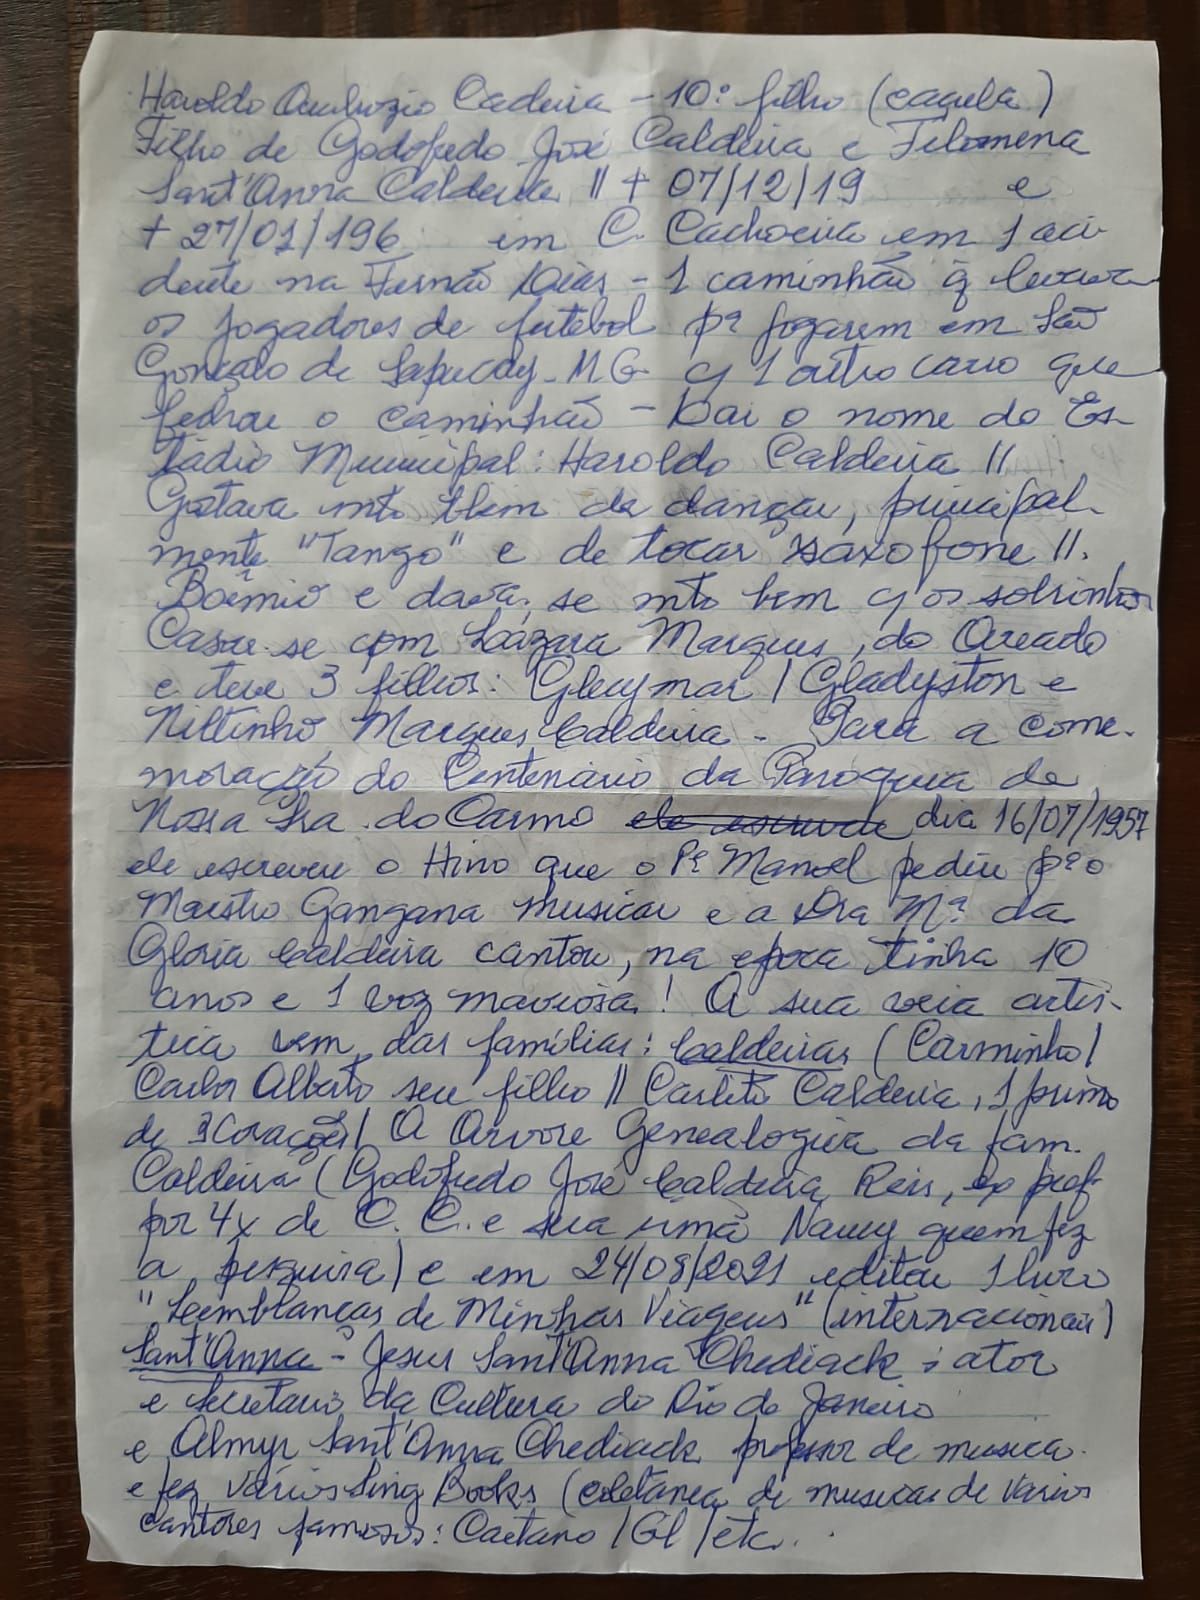 Haroldo Ambrozio Cadeira - 10º filho (caçula)
Filho de Godofredo José Caldeira e Filomena
Sant'Anna Caldeira || + 07/12/19 e
+ 27/01/196 em C. Cachoeira em 1 aci
dente na Fernão Dias - 1 caminhão q̃ levava
os jogadores de futebol pª jogarem em São
Gonçalo de Sapucay - M.G. c/ 1 outro carro que
fechou o caminhão - Daí o nome do Es-
tádio Municipal: Haroldo Caldeira ||
Gostava mtº bem de dançar, principal-
mente "Tango" e de tocar saxofone ||.
Boêmio e dava-se mtº bem c/ os sobrinhos
Casou-se com Lázara Marques, do Areado
e teve 3 filhos: Gleymar / Gladyston e
Niltinho Marques Caldeira - Para a come-
moração do Centenário da Paróquia de
Nossa Sra. do Carmo ele escreve dia 16/07/1957
ele escreveu o Hino que o Pe Manoel pediu pº o
Maestro Gangana musicar e a Dra Mª da
Gloria Caldeira cantou, na epoca tinha 10
anos e 1 voz maviosa! A sua veia artís-
tica vem das famílias: Caldeiras (Carminho /
Carlos Alberto seu filho || Carlito Caldeira, 1 primo
de 3 Corações / A Arvore Genealogica da fam.
Caldeira (Godofredo José Caldeira Reis, ex pref.
por 4x de C. C. e sua irmã Nancy quem fez
a pesquisa) e em 24/08/2021 editou 1 livro
"Lembranças de Minhas Viagens" (internacionais)
Sant'Anna - Jesus Sant'Anna Chediack : ator
e secretario da Cultura do Rio de Janeiro
e Almyr Sant'Anna Chediack professor de musica
e fez vários Sing Books (coletanea de musicas de varios
cantores famosos: Caetano / Gl / etc.